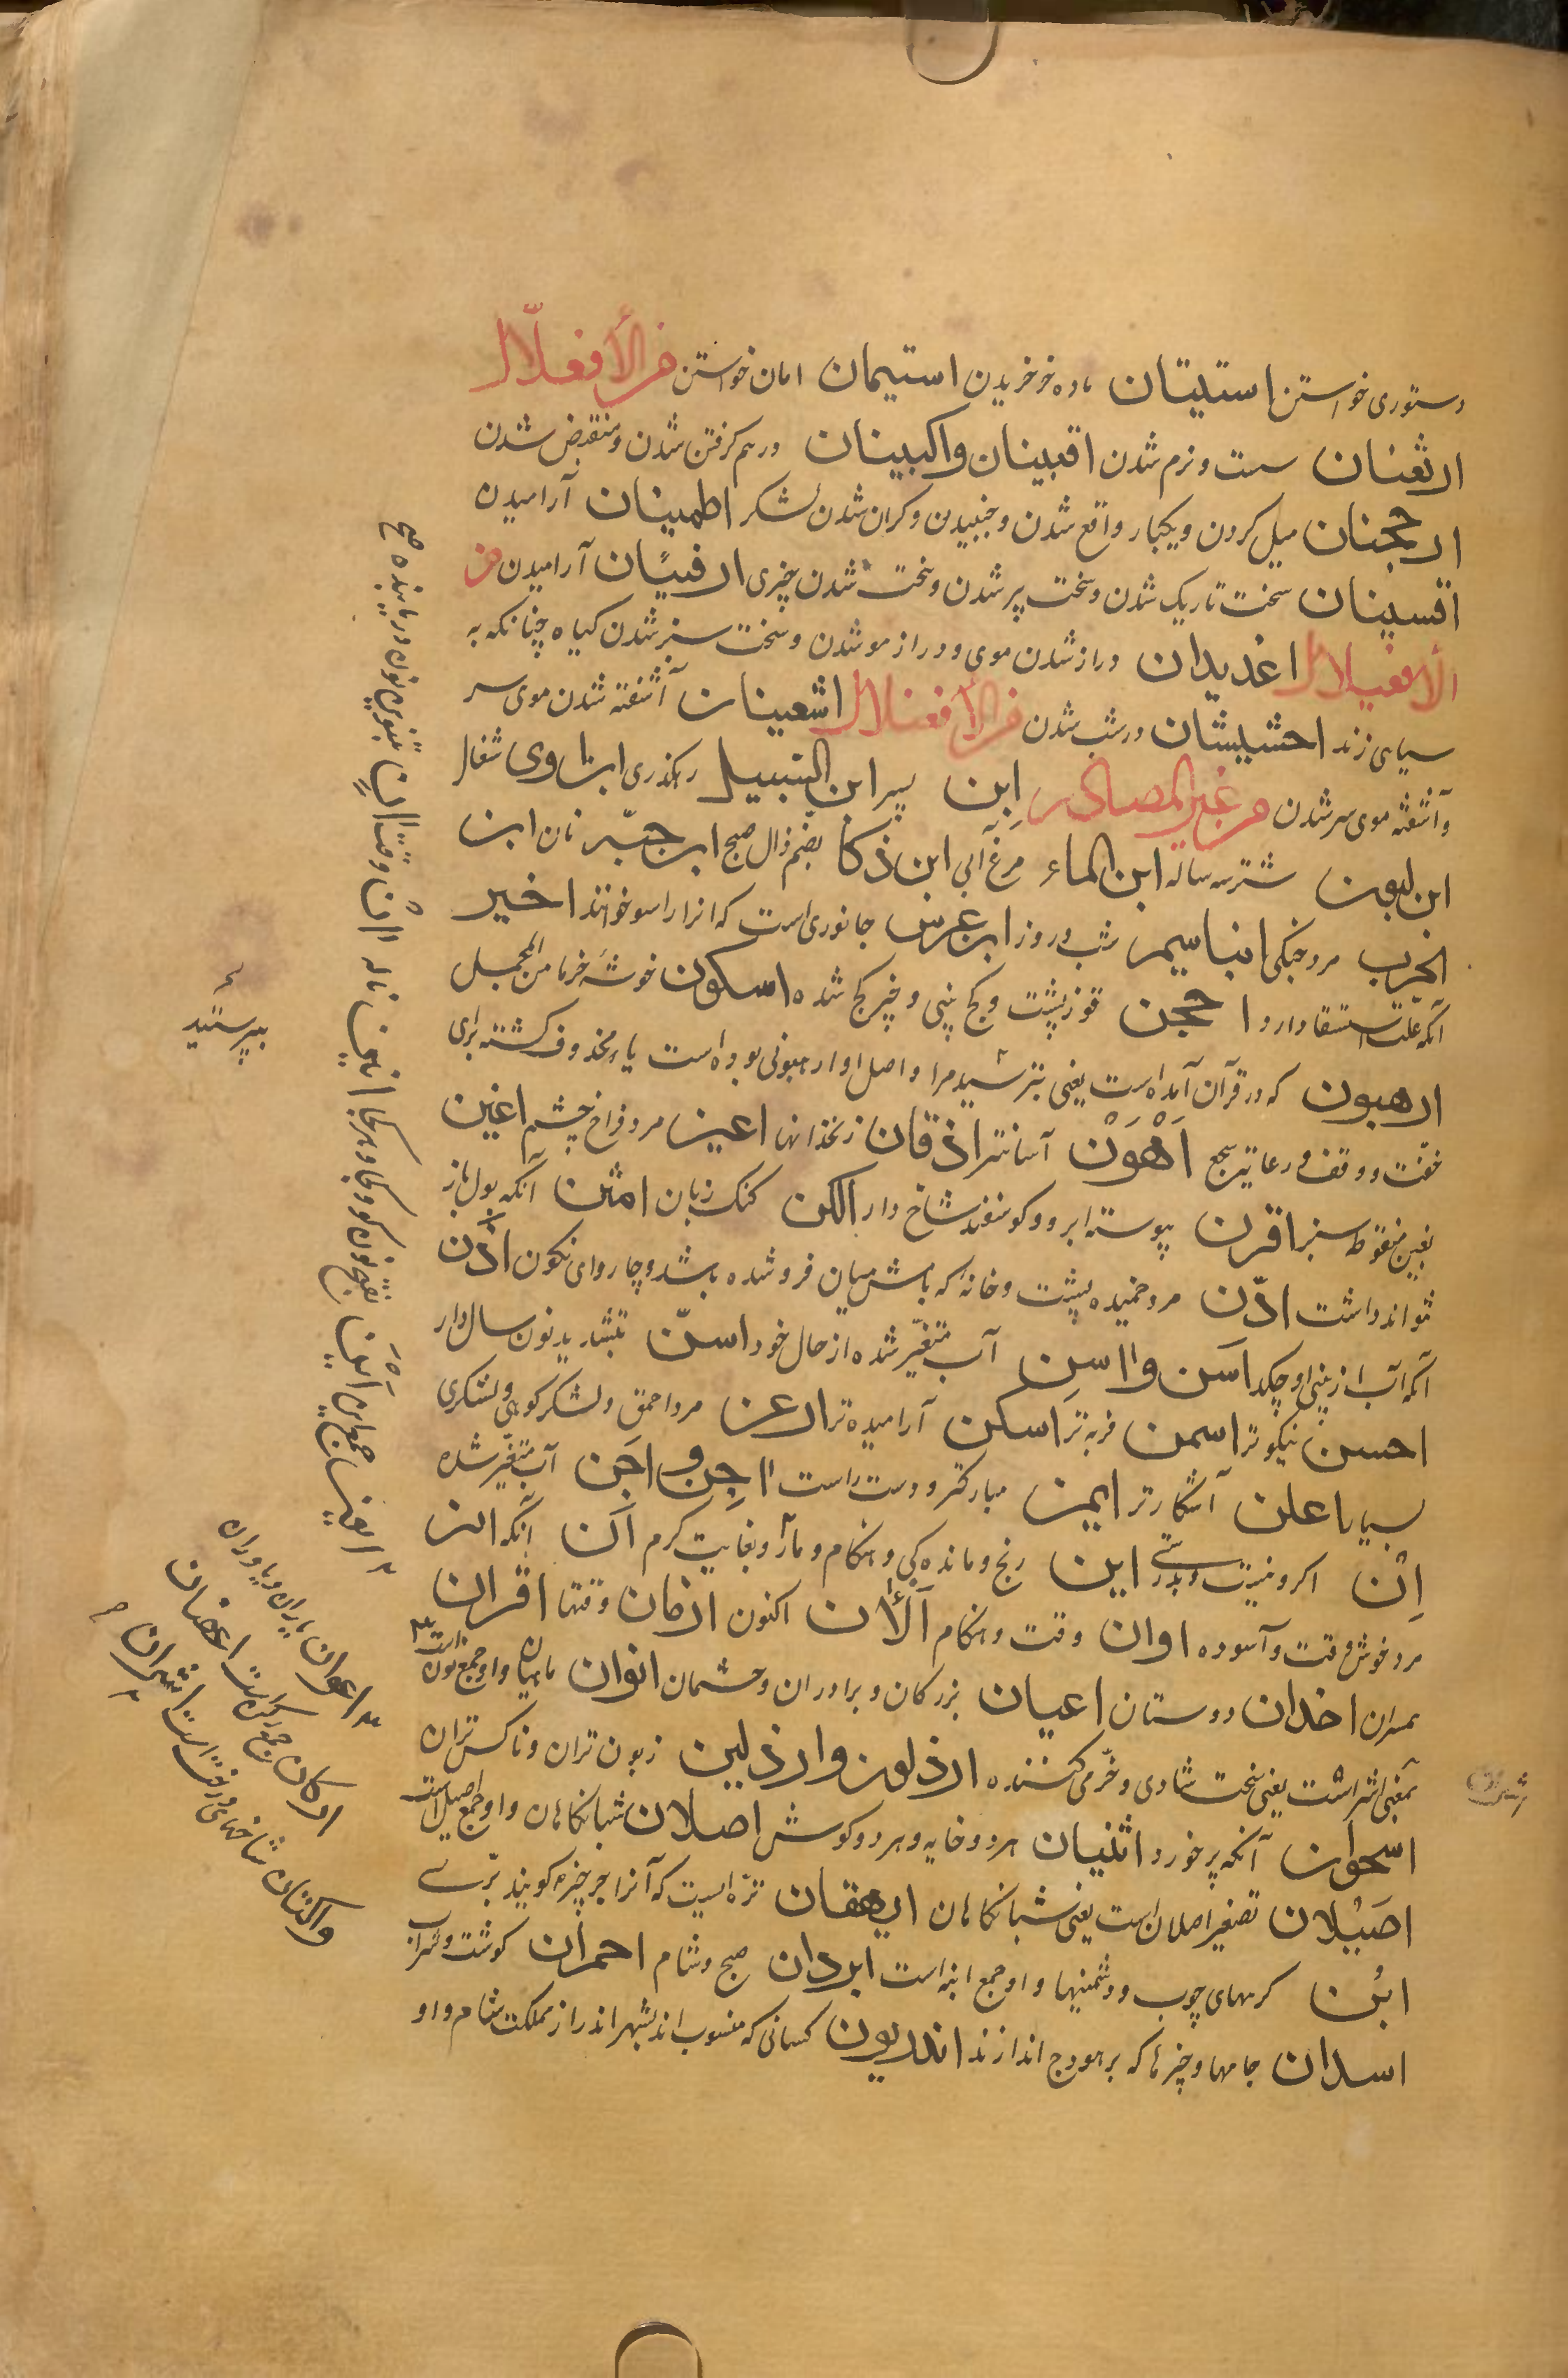 دستوری خواستن استیتان ماده خر خریدن استیمان امان خواستن من الأفعلّال
ارثعنان سست و نرم شدن اقبینان واکبینان درهم کرفتن شدن و منقبض شدن
ارجحنان میل کردن و یکبار واقع شدن و جنبیدن و کران شدن لشکر اطمینان آرامیدن
اقسینان سخت تاریک شدن و سخت پر شدن و سخت شدن چیزی ارفیٔنان آرامیدن من
الأفعیلال اغدیدان دراز شدن موی و دراز مو شدن و سخت سبز شدن کیاه چنانکه به
سیاهی زند احشیشان درشب شدن من الأفعنلال اشعینان آشفته شدن موی سر
و آشفته موی سر شدن من غیر المصادر ابن پسر ابن السّبیل رهکذری ابن اوی شغال
ابن لبون شتر سه ساله ابن الماء مرغ آبی ابن ذکا بضم ذال صبح ابن حبّه نان ابن
الحرب مرد جنکی ابنا سیمر شب و روز ابن عرس جانوری است که انرا راسو خوانند اخیر
آنکه علت استسقا دارد احجن قوز پشت و کج بینی و چیز کج شده اسکون خوشه خرما من المجمل
ارهبون که در قرآن آمده است یعنی بترسید مرا و اصل او ارهبونی بوده است یاء محذوف کشته برای
خفت و وقف و رعایت سجع اَهْوَنْ آسانتر اذقان زنخدانها اعین مرد فراخ چشم اغین
بغین منقوط سبز اقرن پیوسته ابرو و کوسفند شاخ دار الکن کنک زبان امثن آنکه بول باز
نتواند داشت ادّن مرد خمیده پشت و خانه که بامش میان فرو شده باشد و چاروای نکون اذّن
آنکه آب از بینی او چکد اسن و ااسن آب متغیّر شده از حال خود اسنّ بتشدید نون سال دار
احسن نیکوتر اسمن فربه تر اسکن آرامیده تر ارعن مرد احمق و لشکر کوهی و لشکری
بسیار اعلن آشکارتر ایمن مبارکتر و دست راست ااجِن و اجن آب متغیّر شده
اِنْ اکر و نیست و بدرستی این رنج و مانده کی و هنکام و مار و بغایت کرم ان آنکه انن
مرد خوش وقت و آسوده اوان وقت و هنکام الأن اکنون ازمان وقتها اقران
همسران اخدان دوستان اعیان بزرکان و برادران و چشمان انوان ماهیان و او جمع نون است
بمعنی اشر است یعنی سخت شادی و خرّمی کننده ارذلون وارذلین زبون تران و ناکس تران
اسحوان آنکه پر خورد اثنیان هر دو خایه و هر دو کوش اصلان شبانکاهان و او جمع اصیل است
اصَیْلان تصغیر اصلان است یعنی شبانکاهان ایهقان ترّه ایست که آنرا جرجیر کویند برّی
ابُن کرههای چوب و دشمنیها و او جمع ابنه است ابردان صبح و شام احمران کوشت و شراب
اسدان جامها و چیزها که بر هودج اندازند اندریون کسانی که منسوب اند بشهر اندر از مملکت شام و او
بپرستید
اعوان یاران و یاوران
ارکان جمع رکن است اغصان
شاخهای درخت است اشران